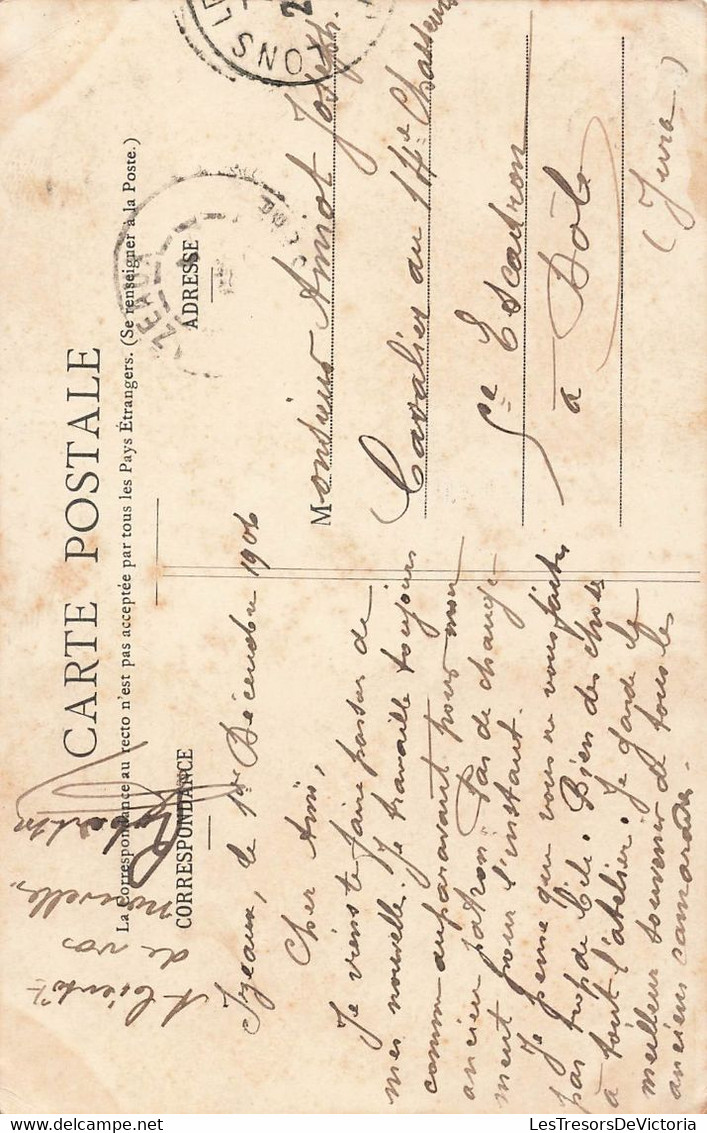 CARTE POSTALE
La Correspondance au recto n'est pas acceptée par tous les Pays Étrangers. (Se renseigner à la Poste.)
CORRESPONDANCE
ADRESSE
Izeaux, le 1er Décembre 1906
Cher Ami,
Je viens te faire passer de
mes nouvelle. Je travaille toujours
comm auparavant pour mon
ancien patron. Pas de change-
ment pour l'instant.
Je pense que vous ne vous faites
pas trop de bile. Bien des choses
à tout l'atelier. Je garde le
meilleur souvenir de tous les
anciens camarades.
A bientôt
de vos
nouvelles.
Monsieur Amiot Joseph
Cavalier au 14e Chasseurs
5e Escadron
à Dôle
(Jura)
IZEAUX
LONS LE
LesTresorsDeVictoria.com